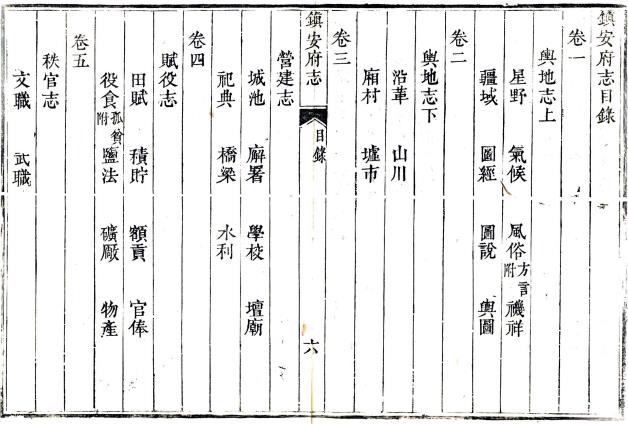 鎮安府志目錄
卷一
輿地志上
星野 氣候 風俗方言附 禨祥
疆域 圖經 圖說 輿圖
卷二
輿地志下
沿革 山川
廂村 墟市
卷三
鎮安府志 目錄 六
營建志
城池 廨署 學校 壇廟
祀典 橋梁 水利
卷四
賦役志
田賦 積貯 額貢 官俸
役食孤貧附 鹽法 礦厰 物產
卷五
秩官志
文職 武職